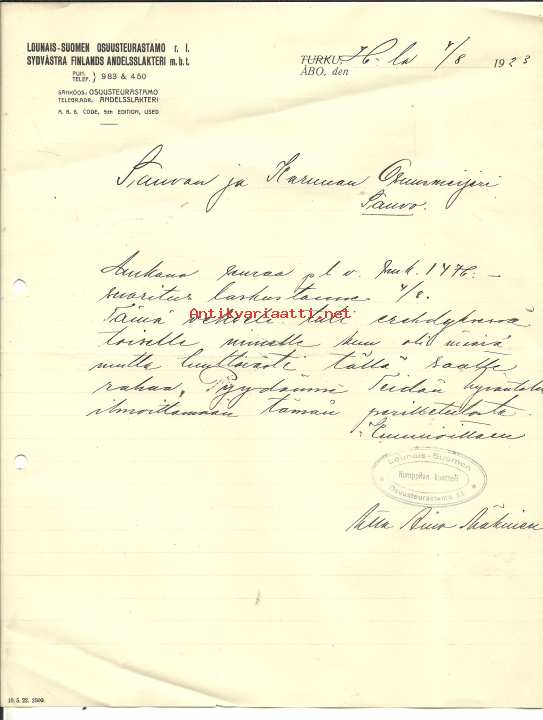 LOUNAIS-SUOMEN OSUUSTEURASTAMO r. l.
SYDVÄSTRA FINLANDS ANDELSSLAKTERI m. b. t.
PUH. TELEF. } 983 & 450
SÄHKÖOS.: OSUUSTEURASTAMO
TELEGRADR. ANDELSSLAKTERI
A. B. C. CODE, 5th EDITION, USED
TURKU, H-la 7/8 1923
ÅBO, den
Sauvon ja Karunan Osuusmeijeri
Sauvo.
Mukana seuraa Smk. 1476:-
suoritus laskustanne 7/8.
Tämä vekseli tuli erehdyksessä
toiselle nimelle kun oli määrä
mutta tällä saatte
rahaa, Pyydämme Teidän
ilmoittamaan tämän perilletulosta.
Kunnioittaen
Lounais-Suomen
Humppilan konttori
Osuusteurastamo r.l.
Aino Mäkinen
Antikvariaatti.net
10. 5. 22. 2500.